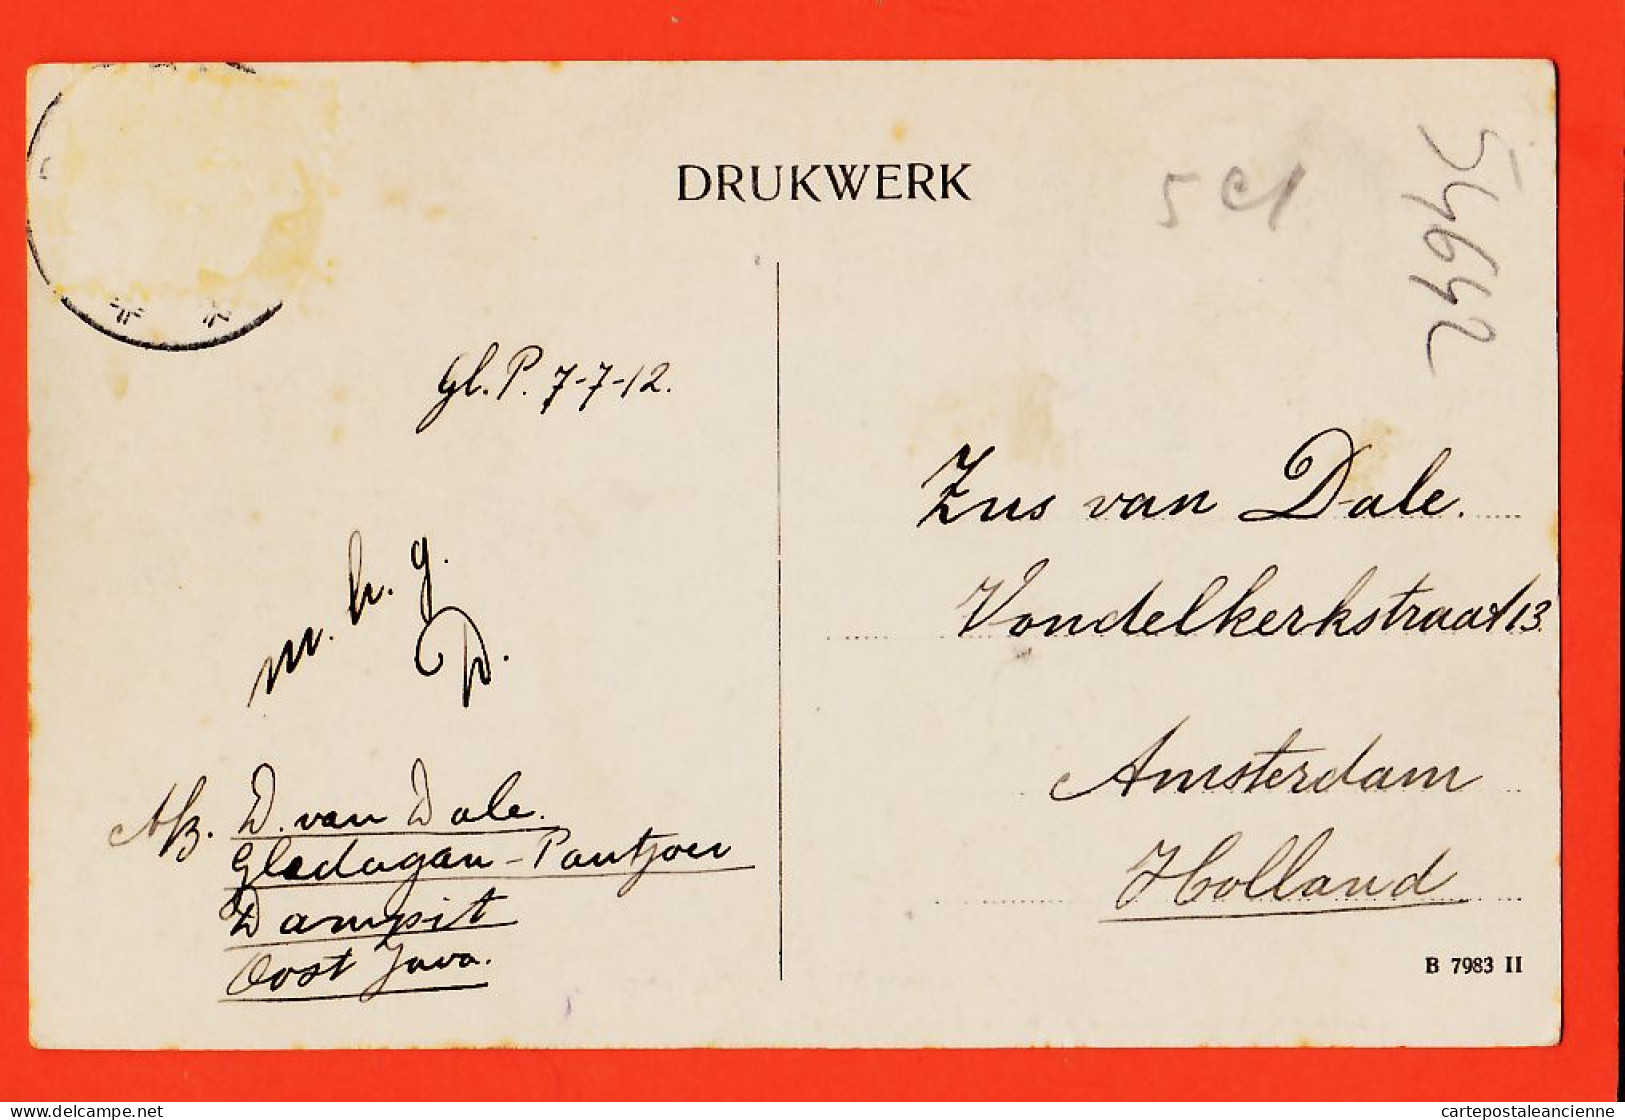 DRUKWERK
5 ct
54642
Gl. P. 7-7-12.
m. h. g.
D.
Afz. D. van Dale.
Gledagan-Pantjoer
Dampit
Oost Java.
Zus van Dale.
Vondelkerkstraat 13.
Amsterdam
Holland
B 7983 II
delcampe.net
cartepostaleancienne